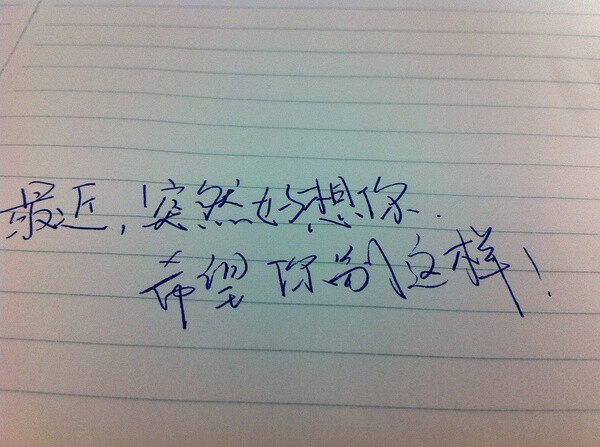 最近,突然好想你.
希望你别这样!